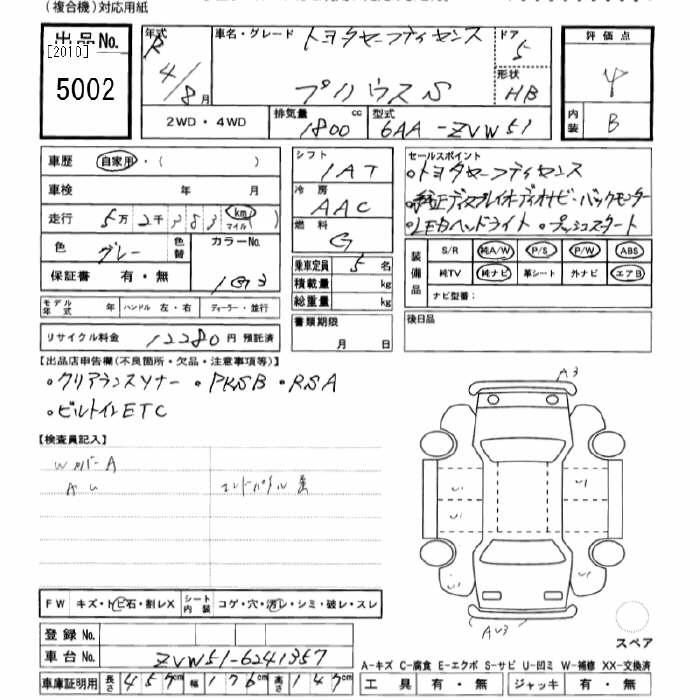 (複合機)対応用紙
出品 No.
[2010]
5002
年式 R 4/8月
車名・グレード トヨタセーフティセンス
プリウスS
ドア 5
形状 HB
評価点 4
内装 B
2WD・4WD
排気量 1800 cc
型式 6AA-ZVW51
車歴 自家用・( )
車検 年 月
走行 5万2千283 km マイル( )
色 グレー 色替 カラーNo. 1G3
保証書 有・無
モデル年式 年 ハンドル 左・右 ディーラー・並行
リサイクル料金 12280円 預託済
シフト IAT
冷房 AAC
燃料 G
乗車定員 5 名
積載量 kg
総重量 kg
書類期限
月 日
セールスポイント
・トヨタセーフティセンス
・純正ディスプレイオーディオナビ・バックモニター
・LEDヘッドライト・プッシュスタート
装備品
S/R 純A/W P/S P/W ABS
純TV 純ナビ 革シート 外ナビ エアB
ナビ型番:
後日品
【出品店申告欄(不良箇所・欠品・注意事項等)】
・クリアランスソナー ・PKSB ・RSA
・ビルトインETC
【検査員記入】
WカバーA
AU
エンドパネル
A3
U1
U1
U1
AU3
スペア
FW キズ・トビ石・割レX シート内装 コゲ・穴・汚レ・シミ・破レ・スレ
登録 No.
車台 No. ZVW51-6241357
車庫証明用 長さ 457 cm 幅 176 cm 高さ 147 cm
A-キズ C-腐食 E-エクボ S-サビ U-凹ミ W-補修 XX-交換済
工具 有・無 ジャッキ 有・無